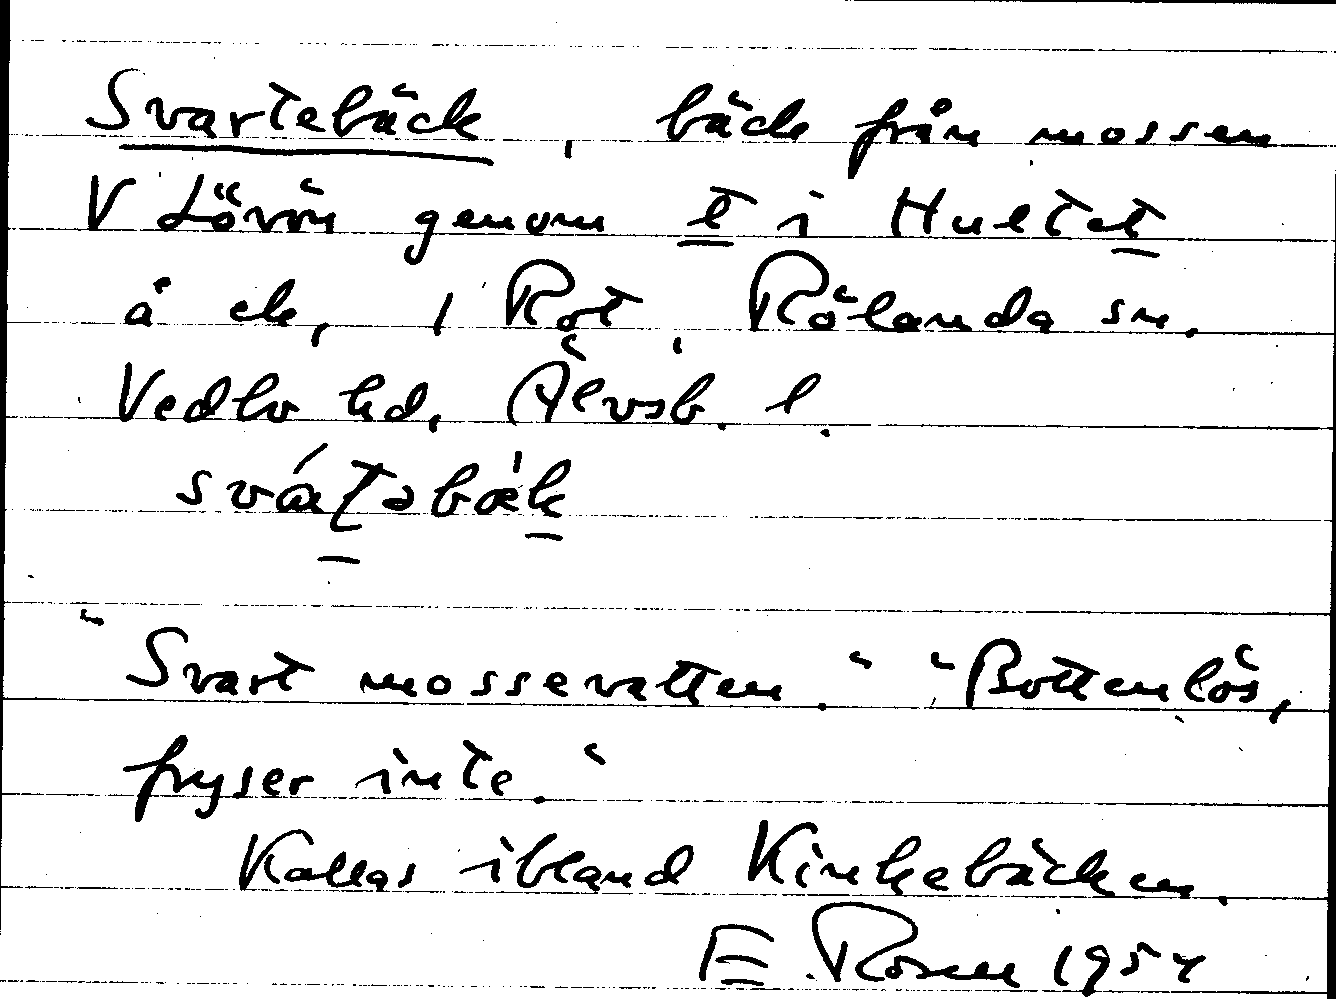 Svartebäck, bäck från mossen
V Lövön genom t i Hultet
å ek, 1 Rot, Rölanda sn.
Vedbo hd, Älvsb. l.
"Svart mossevatten." "Bottenlös,
fryser inte."
Kallas ibland Kinkebäcken.
E. Rosell 1954